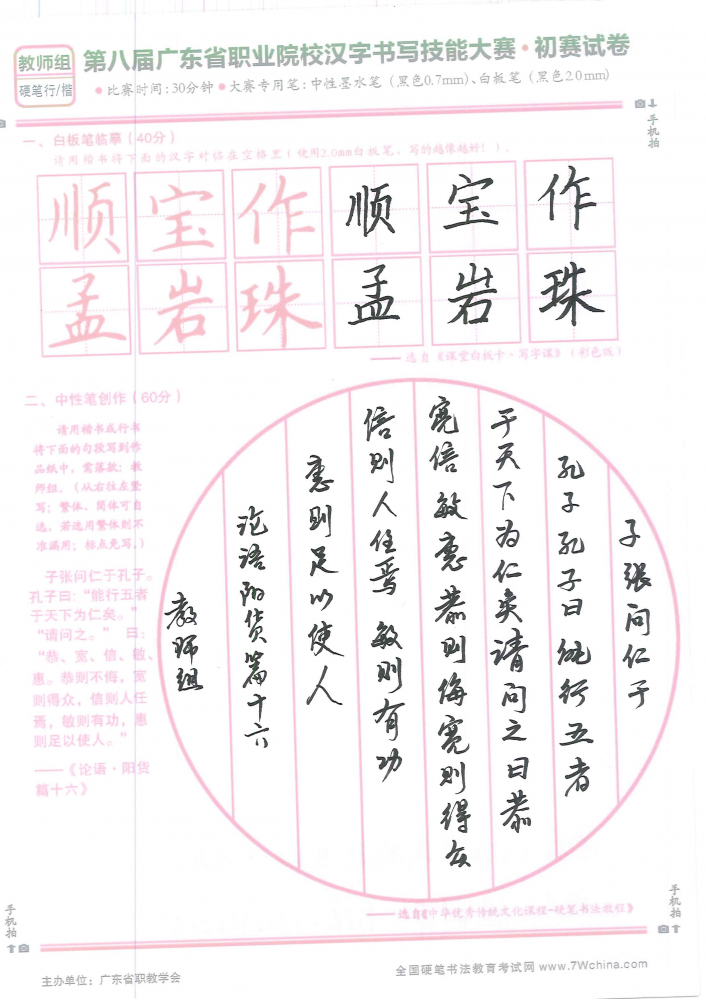 教师组
硬笔行/楷
第八届广东省职业院校汉字书写技能大赛·初赛试卷
●比赛时间:30分钟●大赛专用笔:中性墨水笔（黑色0.7mm)、白板笔（黑色2.0mm)
手机拍
一、白板笔临摹（40分）
请用楷书将下面的汉字对临在空格里（使用2.0mm白板笔，写的越像越好！）。
顺宝作顺宝作
孟岩珠孟岩珠
——选自《课堂白板卡·写字课》（彩色版）
二、中性笔创作（60分）
请用楷书或行书
将下面的句段写到作
品纸中，需落款：教
师组。（从右往左竖
写；繁体、简体可自
选，若选用繁体则不
准漏用；标点免写。）
子张问仁于孔子。
孔子曰：“能行五者
于天下为仁矣。”
“请问之。”曰：
“恭、宽、信、敏、
惠。恭则不侮，宽
则得众，信则人任
焉，敏则有功，惠
则足以使人。”
——《论语·阳货
篇十六》
子張问仁于
孔子孔子曰能行五者
于天下为仁矣请问之曰恭
宽信敏惠恭则侮宽则得众
信则人任焉敏则有功
惠则足以使人
论语阳货篇十六
教师组
——选自《中华优秀传统文化课程-硬笔书法教程》
手机拍
手机拍
主办单位：广东省职教学会
全国硬笔书法教育考试网 www.7Wchina.com